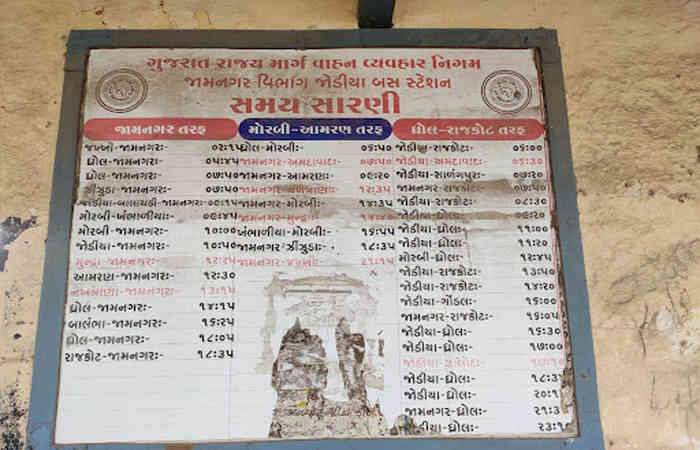 ગુજરાત રાજ્ય માર્ગ વાહન વ્યવહાર નિગમ
જામનગર વિભાગ જોડીયા બસ સ્ટેશન
સમય સારણી
જામનગર તરફ
જખ્ખો-જામનગરઃ- ૦૨:૧૫
ધ્રોલ-જામનગરઃ- ૦૫:૪૫
ધ્રોલ-જામનગરઃ- ૦૭:૫૦
ઝીઝુડા-જામનગરઃ- ૦૭:૫૦
જોડીયા-બાલાચડી-જામનગરઃ- ૦૯:૧૫
મોરબી-ખંભાળીયાઃ- ૦૯:૪૫
મોરબી-જામનગરઃ- ૧૦:૦૦
જોડીયા-જામનગરઃ- ૧૦:૫૦
મુન્દ્રા-જામનગરઃ-
આમરણ-જામનગરઃ- ૧૨:૩૦
નખત્રાણા-જામનગરઃ- ૧૩:૧૫
ધ્રોલ-જામનગરઃ- ૧૪:૧૫
બાલંભા-જામનગરઃ- ૧૬:૨૫
ધ્રોલ-જામનગરઃ- ૧૮:૦૫
રાજકોટ-જામનગરઃ- ૧૮:૩૫
મોરબી-આમરણ તરફ
ધ્રોલ-મોરબીઃ- ૦૬:૫૦
જામનગર-અમદાવાદઃ- ૦૭:૫૦
જામનગર-આમરણઃ- ૦૯:૨૦
જામનગર- ૧૨:૩૫
જામનગર-મોરબીઃ- ૧૪:૩૫
જામનગર-મુન્દ્રાઃ-
ખંભાળીયા-મોરબીઃ- ૧૬:૫૫
જામનગર-ઝીઝુડાઃ- ૧૮:૩૫
જામનગર- ૨૧:૧૫
ધ્રોલ-રાજકોટ તરફ
જોડીયા-રાજકોટઃ- ૦૬:૦૦
જોડીયા-અમદાવાદઃ- ૦૬:૩૦
જોડીયા-સાળંગપુરઃ- ૦૭:૨૦
જામનગર-રાજકોટઃ- ૦૭:૫૦
જોડીયા-રાજકોટઃ- ૦૮:૩૦
જોડીયા-ધ્રોલઃ- ૦૯:૨૦
જોડીયા-રાજકોટઃ- ૧૧:૦૦
જોડીયા-ધ્રોલઃ- ૧૧:૨૦
મોરબી-ધ્રોલઃ- ૧૨:૪૫
જોડીયા-રાજકોટઃ- ૧૩:૫૦
જોડીયા-રાજકોટઃ- ૧૪:૨૦
જોડીયા-ગોંડલઃ- ૧૬:૦૦
જામનગર-રાજકોટઃ- ૧૬:૦૫
જોડીયા-ધ્રોલઃ- ૧૬:૩૦
જોડીયા-ધ્રોલઃ- ૧૭:૦૦
જોડીયા- ૧૭:૧૦
જોડીયા-ધ્રોલઃ-
જોડીયા-ધ્રોલઃ-
જામનગર-ધ્રોલઃ-
જોડીયા-ધ્રોલઃ-